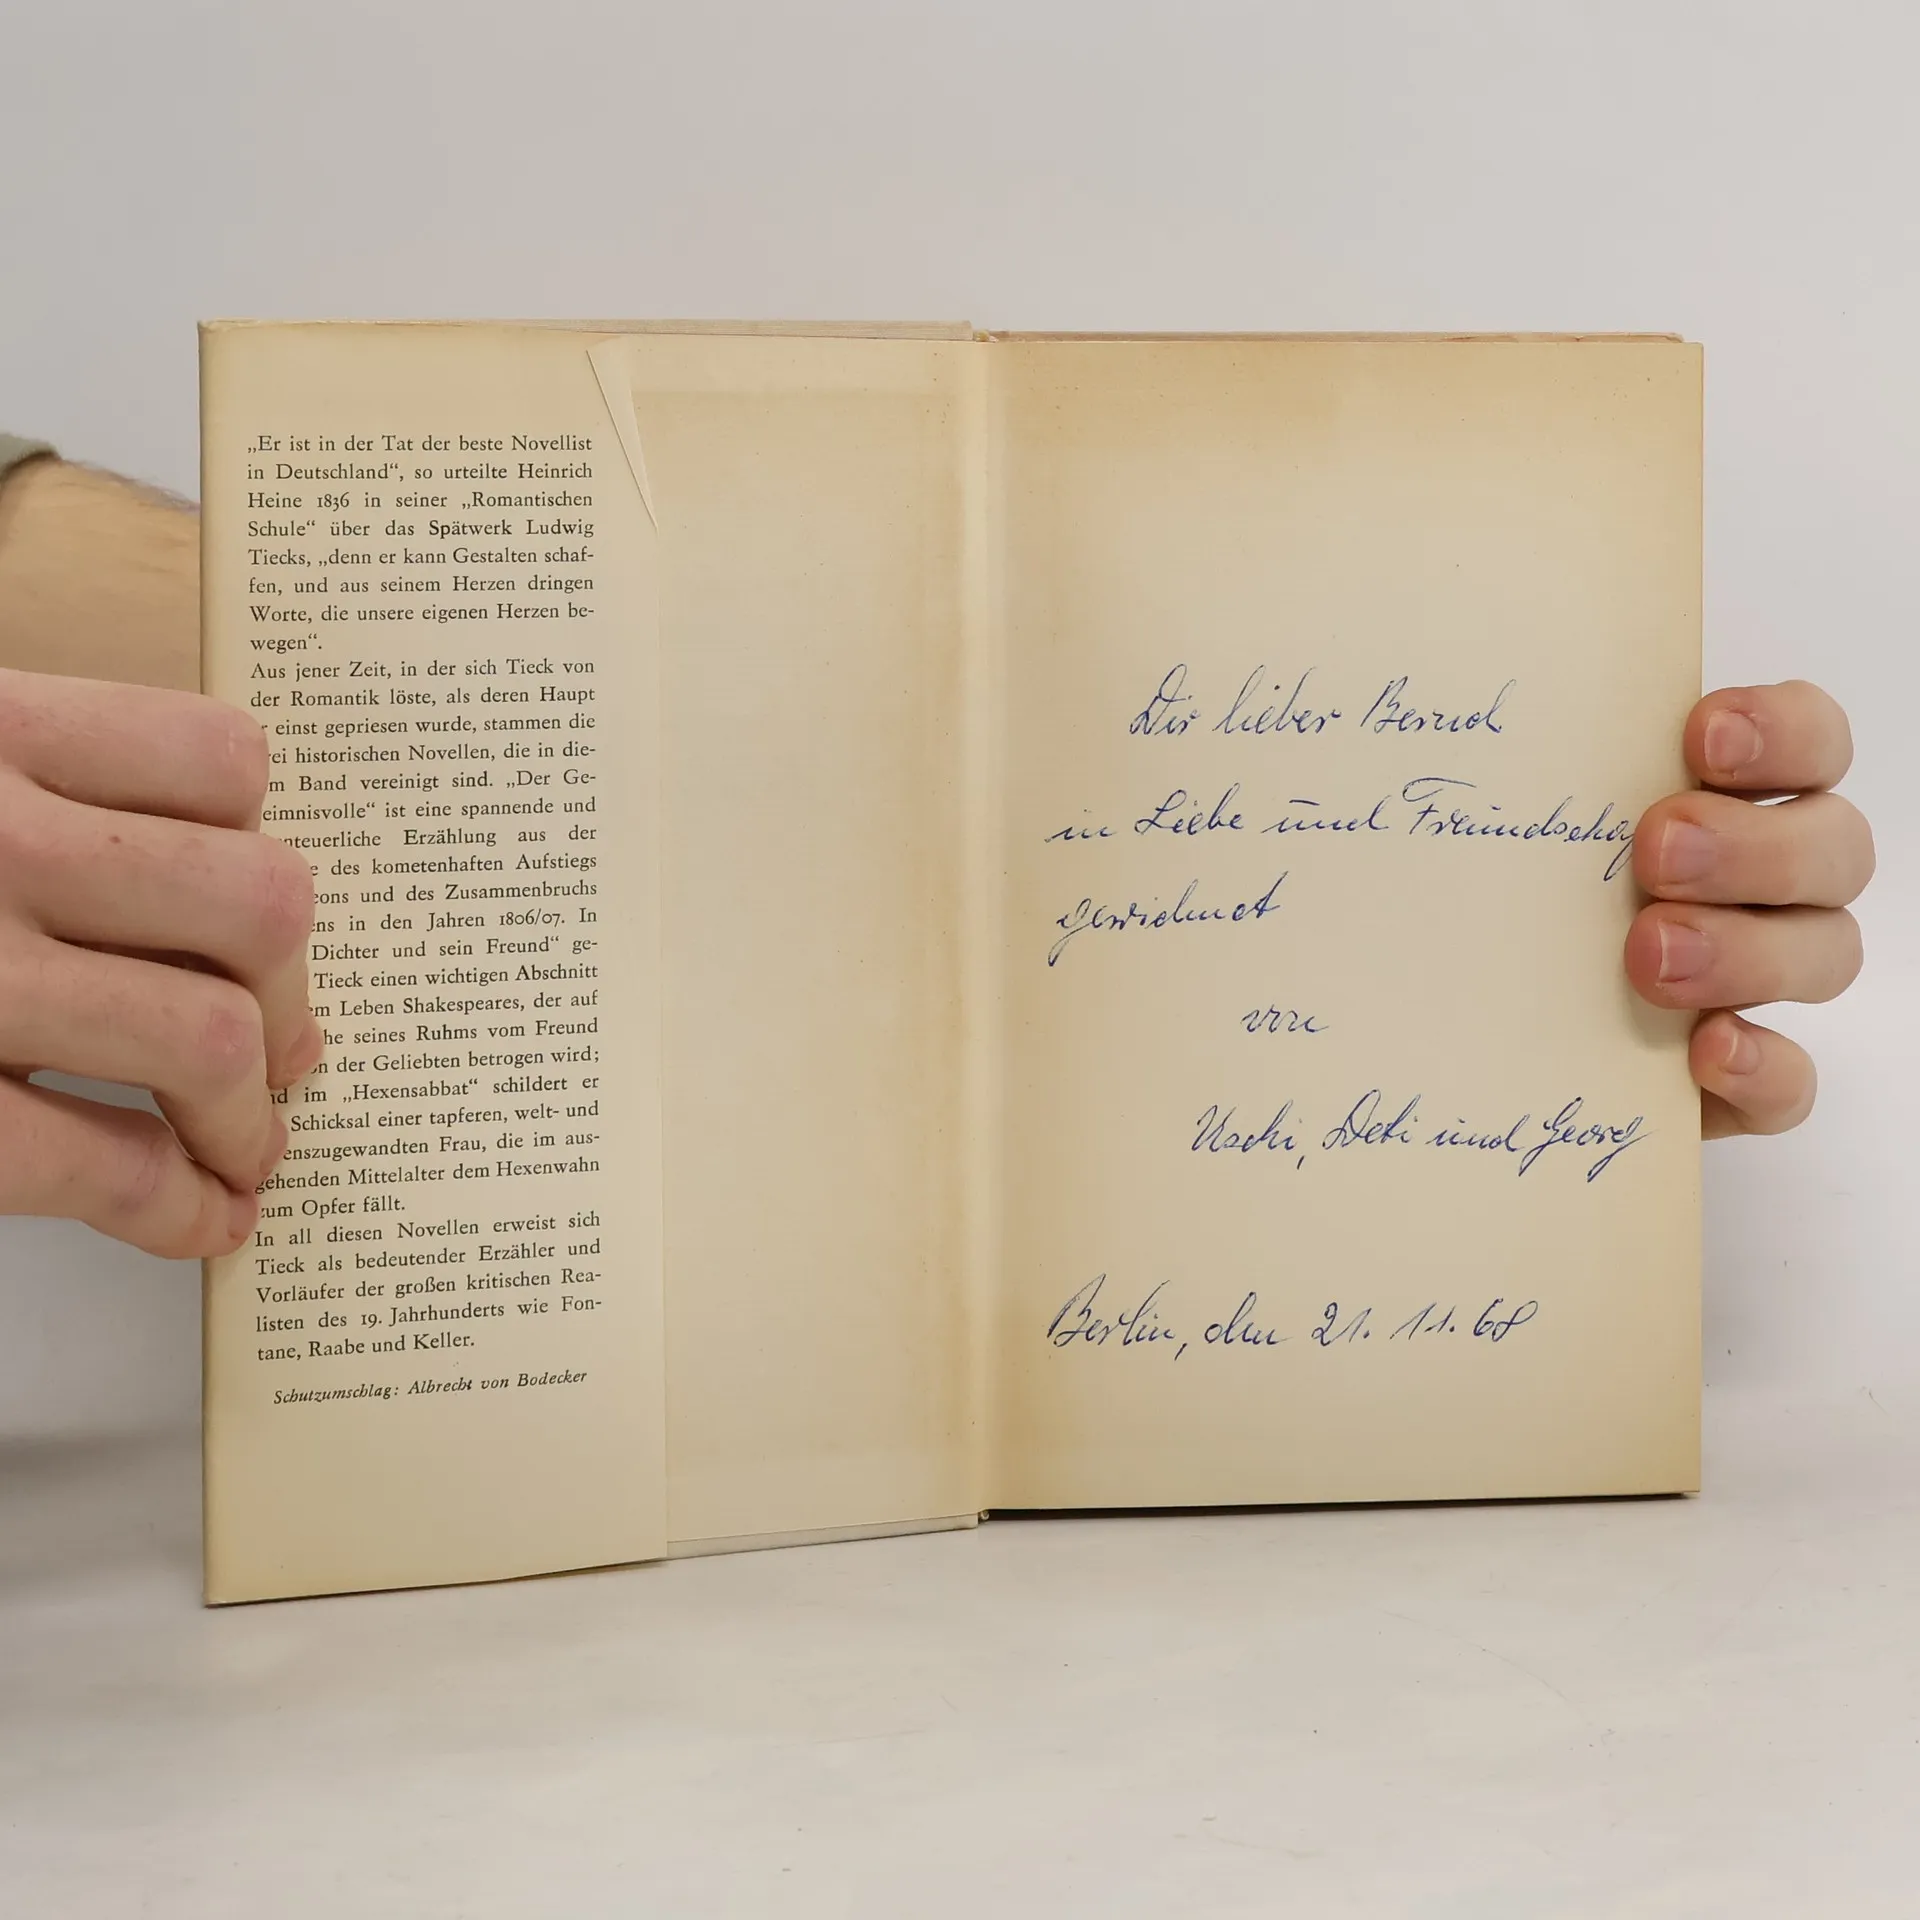 „Er ist in der Tat der beste Novellist
in Deutschland“, so urteilte Heinrich
Heine 1836 in seiner „Romantischen
Schule“ über das Spätwerk Ludwig
Tiecks, „denn er kann Gestalten schaf-
fen, und aus seinem Herzen dringen
Worte, die unsere eigenen Herzen be-
wegen“.
Aus jener Zeit, in der sich Tieck von
der Romantik löste, als deren Haupt
einst gepriesen wurde, stammen die
historischen Novellen, die in die-
Band vereinigt sind. „Der Ge-
eimnisvolle“ ist eine spannende und
nteuerliche Erzählung aus der
des kometenhaften Aufstiegs
eons und des Zusammenbruchs
ens in den Jahren 1806/07. In
Dichter und sein Freund“ ge-
Tieck einen wichtigen Abschnitt
em Leben Shakespeares, der auf
he seines Ruhms vom Freund
on der Geliebten betrogen wird;
nd im „Hexensabbat“ schildert er
Schicksal einer tapferen, welt- und
enszugewandten Frau, die im aus-
gehenden Mittelalter dem Hexenwahn
zum Opfer fällt.
In all diesen Novellen erweist sich
Tieck als bedeutender Erzähler und
Vorläufer der großen kritischen Rea-
listen des 19. Jahrhunderts wie Fon-
tane, Raabe und Keller.
Schutzumschlag: Albrecht von Bodecker
Dir lieber Bernd
in Liebe und Freundschaf
gewidmet
von
Uschi, Deti und Georg
Berlin, den 21. 11. 68